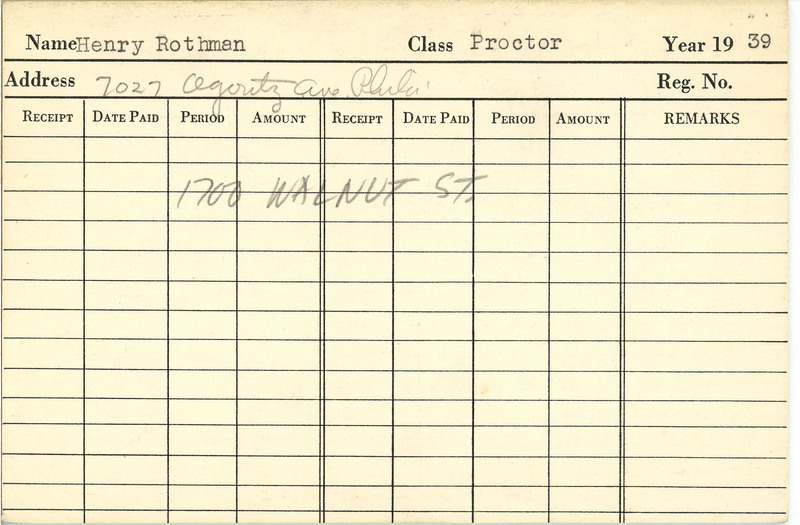 Name Henry Rothman Class Proctor Year 19 39
Address 7027 Ogontz Ave Phila. Reg. No.
RECEIPT DATE PAID PERIOD AMOUNT RECEIPT DATE PAID PERIOD AMOUNT REMARKS
1700 WALNUT ST.